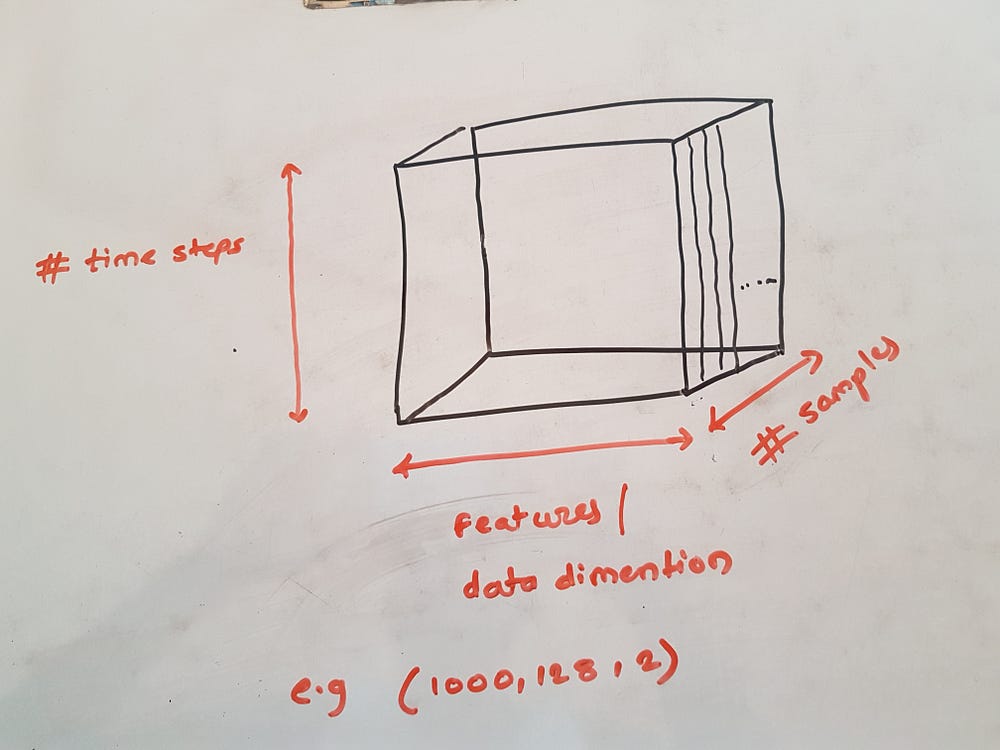 # time steps
# samples
features /
data dimention
e.g (1000, 128, 2)